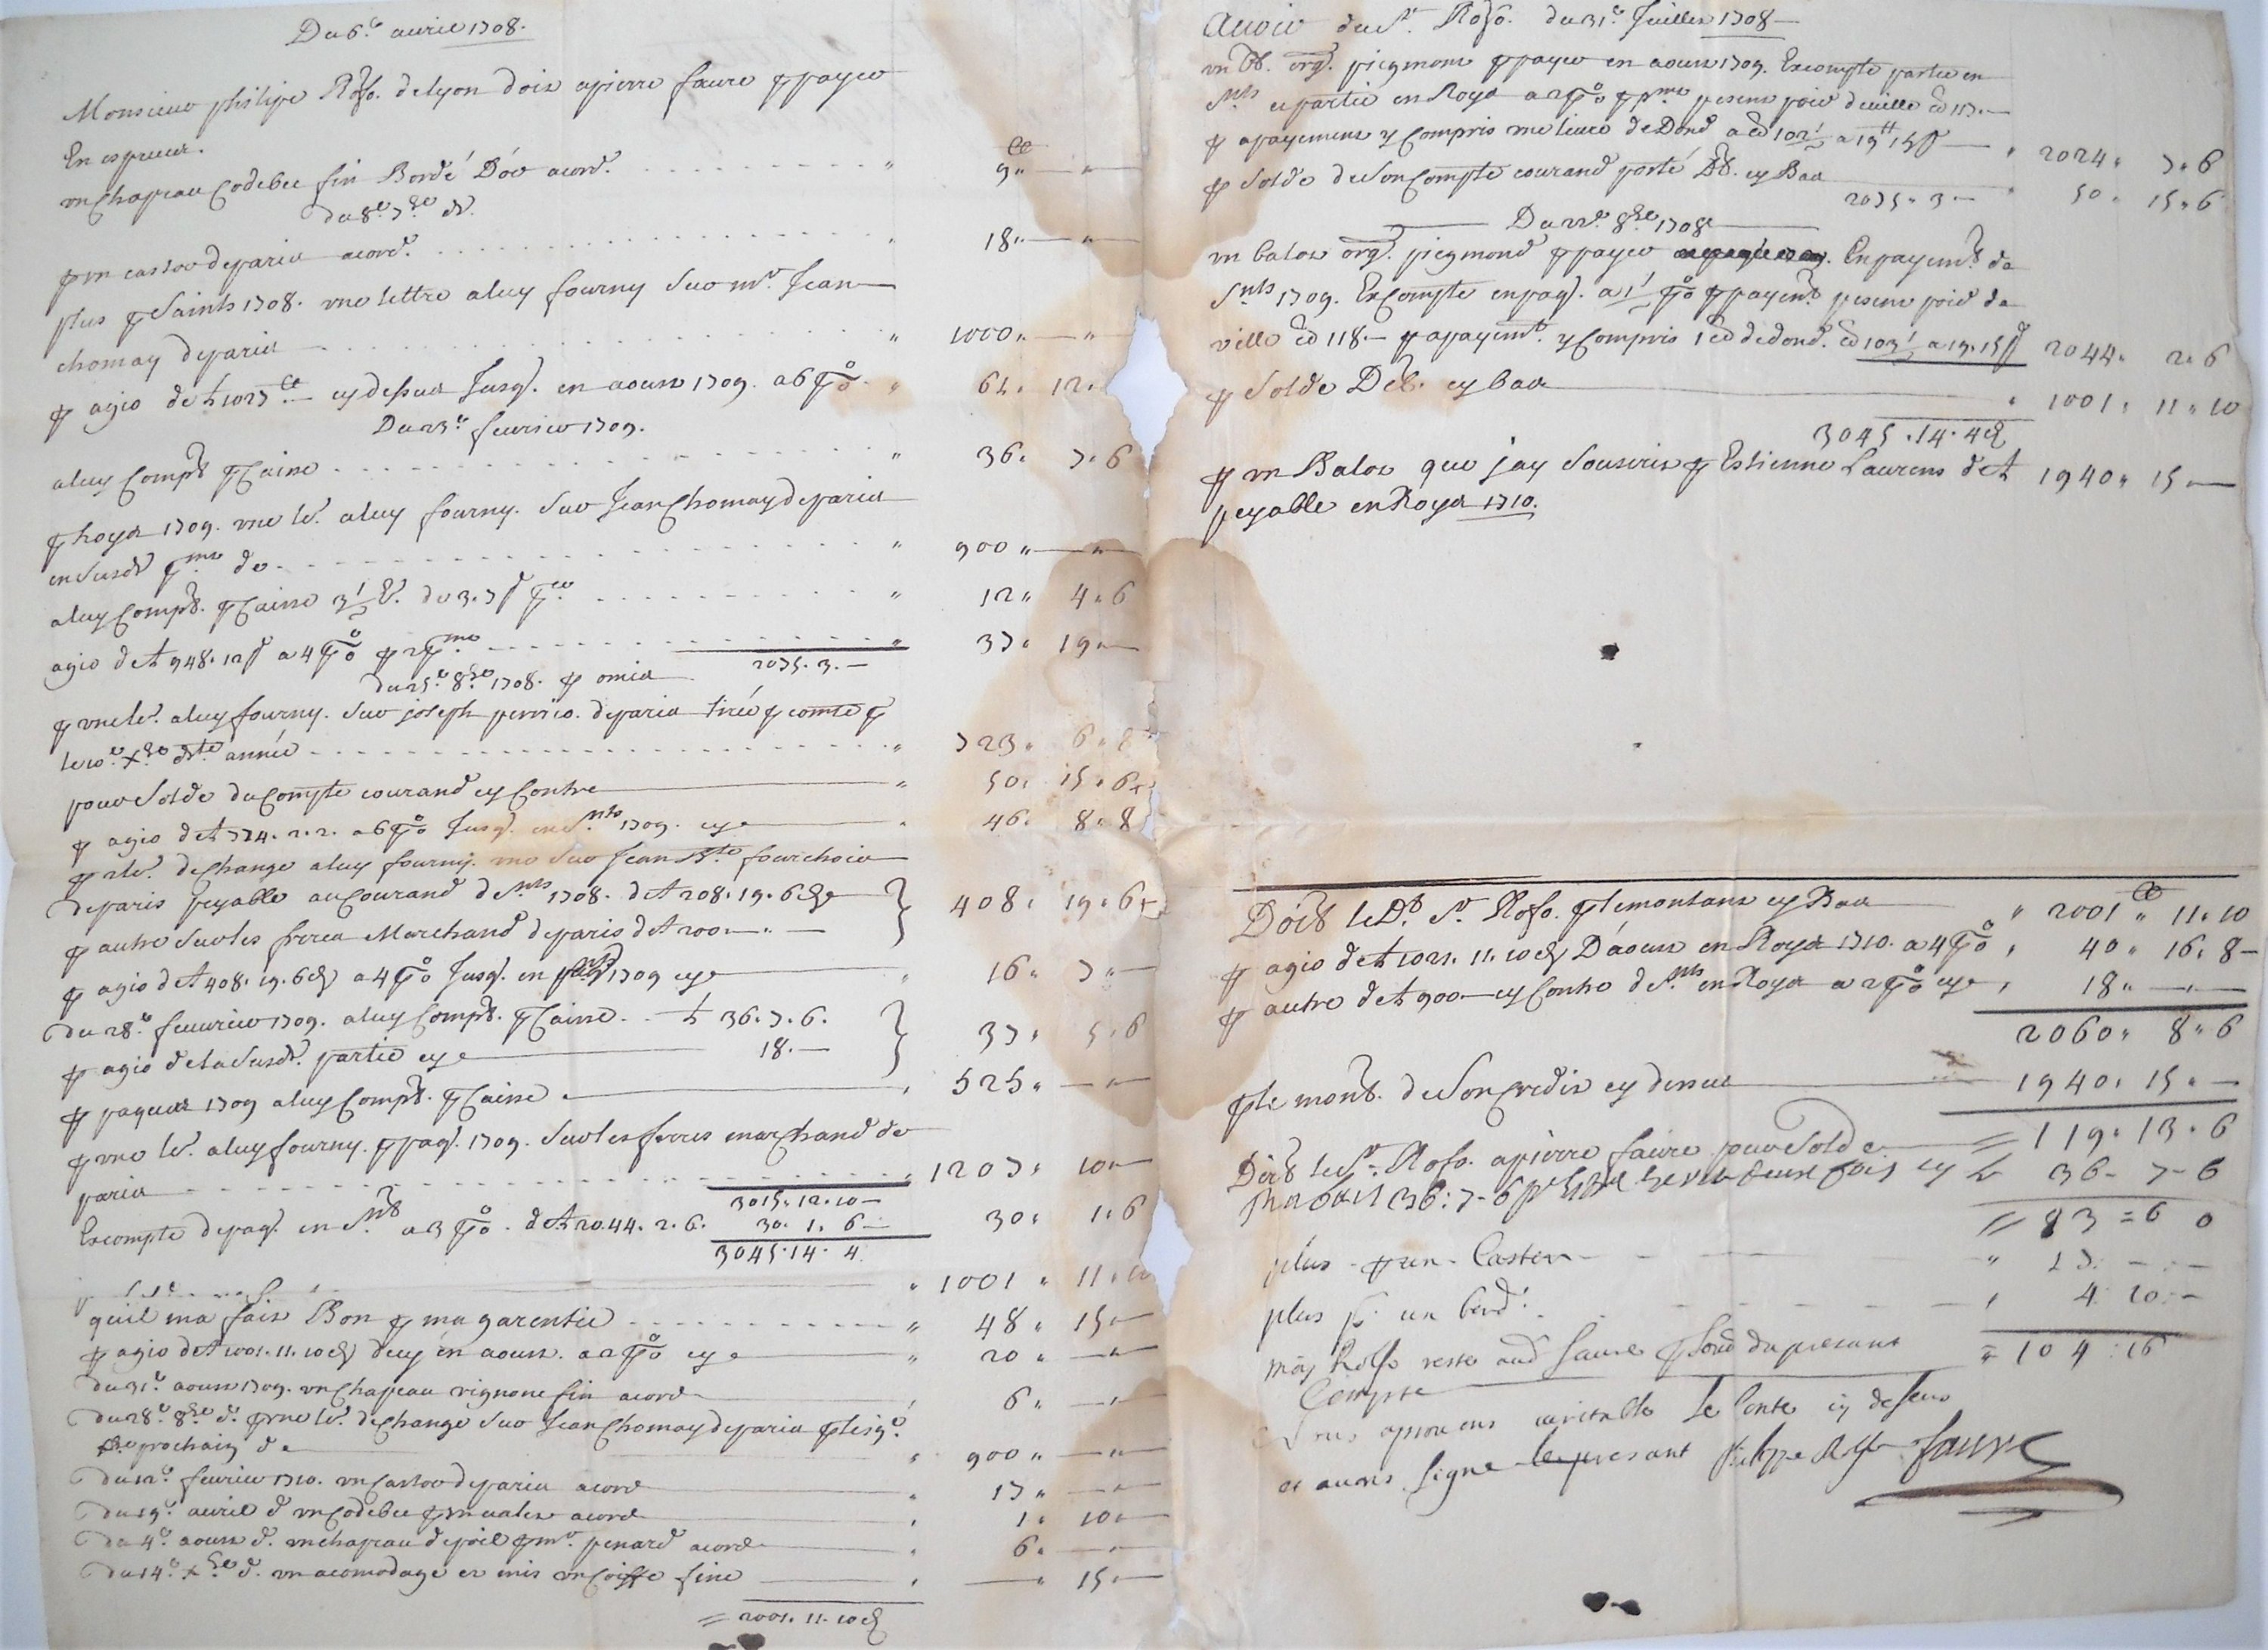 Du 6.e avril 1708.
Monsieur philipe Roso. de lyon doit a pierre faure p payer
En espreces.
un Chapeau Codebec fin Bordé D'or acord. " 9 " — "
du 8.e 7.bre d.
p un castor de paris acord. " 18 " — "
plus p Saints 1708. une lettre a luy fourny sur m.r Jean
chomay de paris " 1000 " — "
p agio de lt 1027 — cy dessus Jusq. en aoust 1709. a 6 p % " 61 . 12 .
Du 23.e feurier 1709.
a luy Compt p Caisse " 36 . 7 . 6
p Roys 1709. une le. a luy fourny. sur Jean Chomay de paris
en susd. de " 900 " — "
a luy Compt. p Caisse 3 1/2 de 3. 7 s " 12 " 4 . 6
agio de lt 948. 12 s a 4 p % p " 37 . 19 —
2075. 3. —
du 25.e 8.bre 1708. p omis
p une le. a luy fourny. sur joseph de paris tirée p comte p
le 10.e x.bre d.te année " 723 . 6 . 8
pour Solde du Compte courand cy Contre " 50 . 15 . 6
p agio de lt 774. 2. 2. a 6 p % Jusq. en S.nts 1709. cy 46 . 8 . 8
p 2 le. de Change a luy fourny. une sur Jean B.te fourchois
de paris payable au Courand de S.nts 1708. de lt 208. 19. 6 } 408 . 19 . 6
p autre sur les freres Marchand de paris de lt 200 — " —
p agio de lt 408. 19. 6 a 4 p % Jusq. en 1709 cy " 16 . 7 —
Du 28.e feurier 1709. a luy Compt. p Caisse lt 36. 7. 6. } 37 . 5 . 6
p agio de la susd. partie cy 18. —
p paques 1709 a luy Compt. p Caisse 525 " — " —
p une le. a luy fourny. p paq. 1709. sur les freres marchand de
paris " 1207 . 10 —
3015. 12. 10 —
Excompte de paq. en S.nts a 3 p %. de lt 2044. 2. 6. 30. 1. 6 — 30 . 1 . 6
3045. 14. 4
" 1001 . 11 . 10
qu'il ma fait Bon p ma garentie " 48 . 15 —
p agio de lt 1001. 11. 10 d'icy en aoust. a 2 p % cy " 20 " — " —
du 31.e aoust 1709. un Chapeau vignone fin acord 6 " — " —
Du 28.e 8.bre d. p une le. de Change sur Jean Chomay de paris
prochain de " 900 " — " —
du 12.e feurier 1710. un Castor de paris acord 17 " — " —
Du 19.e auril d. un Codebec p un valet acord 1 . 10 —
Du 4.e aoust d. un chapeau de poil p m.r penard acord 6 . — " —
Du 14.e x.bre d. un acomodage et mis un Coiffe fine — " 15 —
= 2001. 11. 10
Auoir du S.r Roso. du 31.e Juillet 1708 —
un Bt. org. piegmont p payer en aoust 1709. Excompte partie en
S.nts et partie en Roys a 2 p % pesent poid de ville lb 117. —
p a payement y Compris une liure de Dond a lb 102 1/2 a 19 lt 15 s — 2024 . 7 . 6
p Solde de Son Compte courand porté Db. cy Bas 50 . 15 . 6
2075. 3 —
— Du 22.e 8.bre 1708 —
un balot org. piegmond p payer En payem.t de
S.nts 1709. Excompte en paq. a 1 1/2 p % p payem.t pesent poid de
ville lb 118. — p a payem.t y Compris 1 lb de dond. lb 103 1/2 a 19. 15 s 2044 . 2 . 6
p Solde Deb. cy bas 1001 . 11 . 10
3045 . 14 . 4
p un Balot que j'ay souscrit p Estienne Laurens de lt 1940 . 15 —
payable en Roys 1710.
Doibt le D. S.r Roso. p le montant cy Bas " 2001 " 11 . 10
p agio de lt 1021. 11. 10 D'aoust en Roys 1710. a 4 p % " 40 " 16 . 8 —
p autre de lt 900 — cy Contre de S.nts en Roys a 2 p % cy " 18 " — " —
2060 . 8 . 6
p le mont. de Son Credit cy dessus 1940 . 15 . —
Doibt le S.r Roso. a pierre faure pour Solde = 119 . 13 . 6
36 : 7 - 6 deux fois cy lt 36 - 7 - 6
= 83 = 6 0
plus - p un - Castor " 17 . — . —
plus p. un bord. 4 10 : —
moy Roso reste aud faure p du presant = 104 : 16
Compte
aprouons veritable le Conte cy desus
et auons signe le presant philippe Roso faure